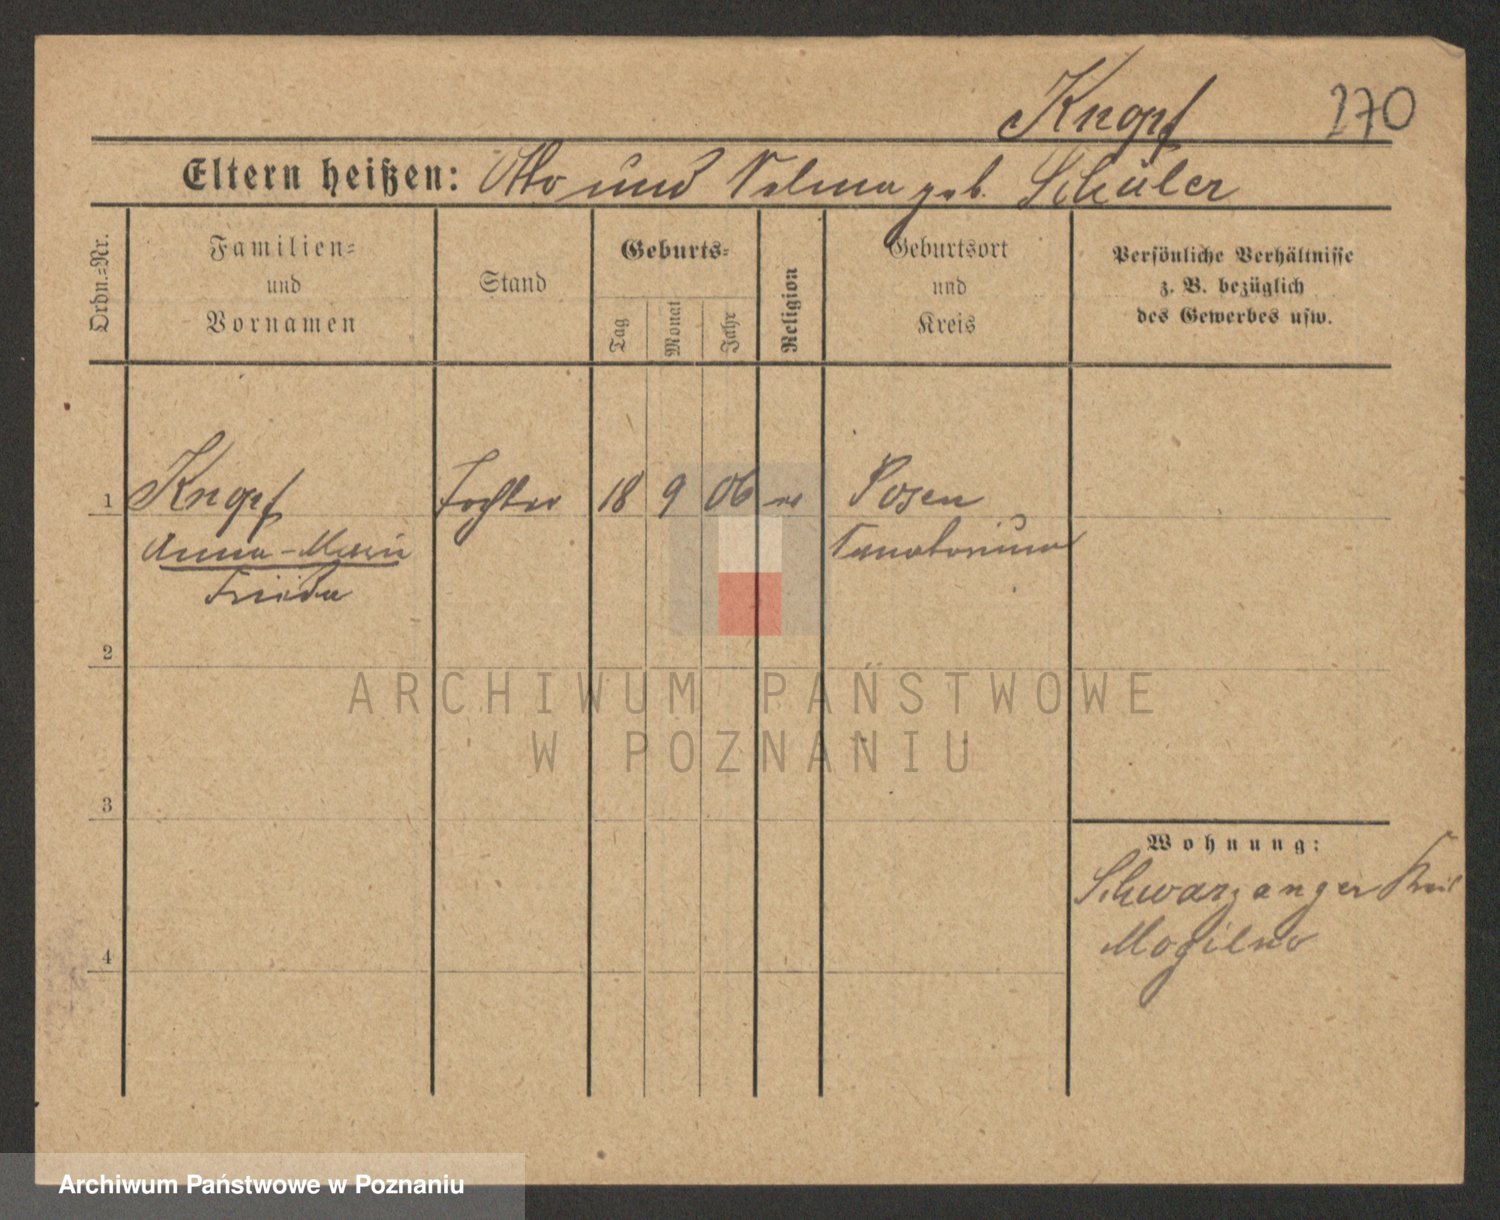 Knopf 270
Eltern heißen: Otto und Selma geb. Schüler
Ordn.=Nr.
Familien=
und
Vornamen
Stand
Geburts=
Tag
Monat
Jahr
Religion
Geburtsort
und
Kreis
Persönliche Verhältnisse
z. B. bezüglich
des Gewerbes usw.
1 Knopf Tochter 18 9 06 ev Posen
Anna-Marie Sanatorium
Frieda
2
ARCHIWUM PAŃSTWOWE
W POZNANIU
3
Wohnung:
Schwarzanger Kreis
Mogilno
4
Archiwum Państwowe w Poznaniu